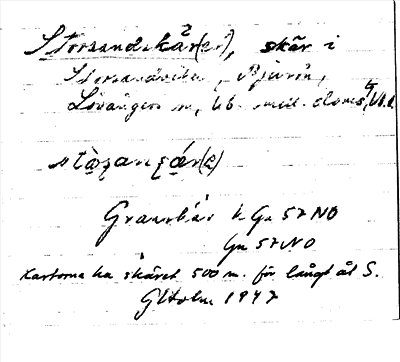 Storsandskär(et), skär i
Storsandviken, Bjurön,
Lövångers sn, Vb. mell. doms., Vb.l.
stɔ̀ṣanṣǽr(e)
Granskär k Gn 57 NO
Gn 57 NO
Kartorna ha skäret 500 m. för långt åt S.
G Holm 1947